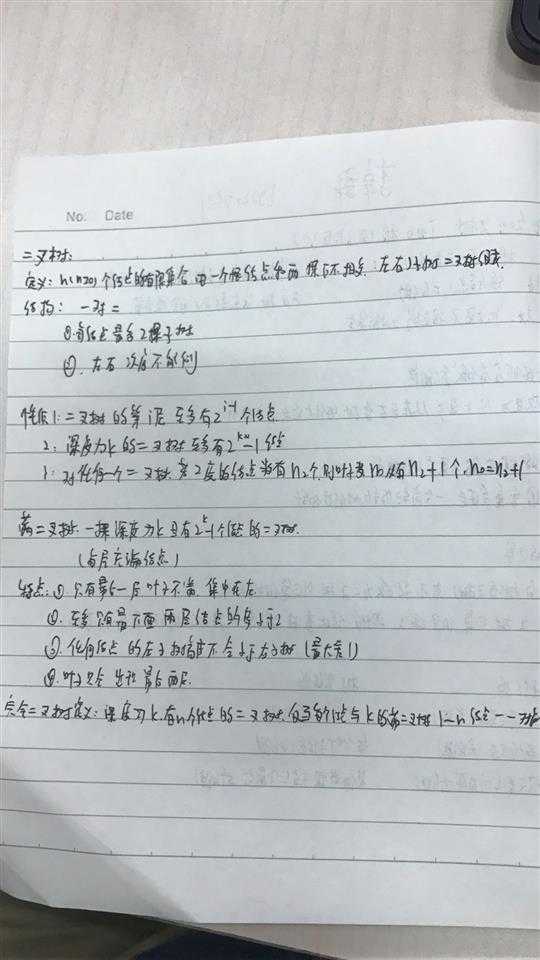 No. Date
二叉树:
定义: n(n≥0)个结点的有限集合 由一个根结点和两棵互不相交 左右子树 二叉树组成
结构: 一对二
①.每结点最多2棵子树
②. 左右 次序不能倒
性质1: 二叉树的第i层至多有2^(i-1)个结点
2: 深度为k的二叉树至多有2^k-1结点
3: 对任何一个二叉树 若2度的结点数有n₂个,则叶子数n₀必有n₂+1个. n₀=n₂+1
满二叉树. 一棵深度为k且有2^k-1个结点的二叉树.
(每层充满结点)
特点: ① 只有最后一层叶子不满 集中在左
②. 至多只有最下面两层结点的度小于2
③. 任何结点的左子树高度不会小于右子树 (最大差1)
④. 叶子只会出现最后两层.
完全二叉树定义: 深度为k.有n个结点的二叉树.仅当每个结点与k的满二叉树1—n结点一一对应